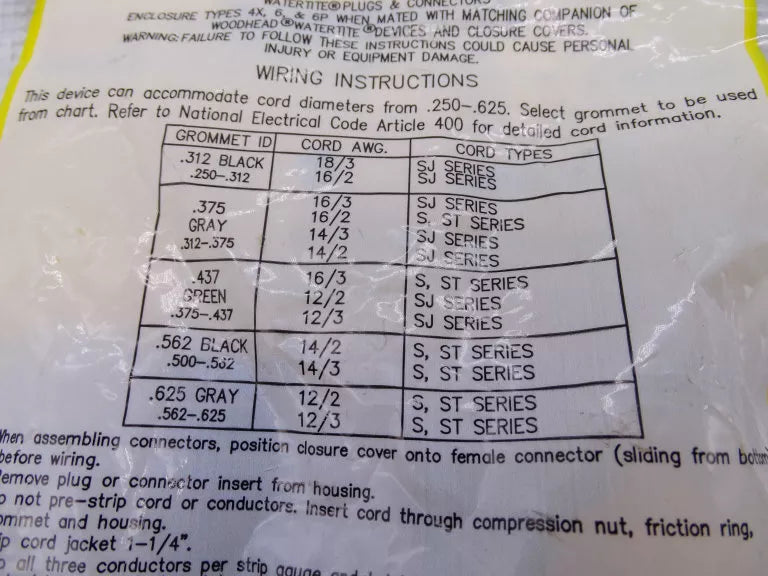 WATERTITE® PLUGS & CONNECTORS
ENCLOSURE TYPES 4X, 6, & 6P WHEN MATED WITH MATCHING COMPANION OF
WOODHEAD® WATERTITE® DEVICES AND CLOSURE COVERS.
WARNING: FAILURE TO FOLLOW THESE INSTRUCTIONS COULD CAUSE PERSONAL
INJURY OR EQUIPMENT DAMAGE.
WIRING INSTRUCTIONS
This device can accommodate cord diameters from .250–.625. Select grommet to be used
from chart. Refer to National Electrical Code Article 400 for detailed cord information.
GROMMET ID CORD AWG. CORD TYPES
.312 BLACK 18/3 SJ SERIES
.250–.312 16/2 SJ SERIES
.375 16/3 SJ SERIES
GRAY 16/2 S, ST SERIES
.312–.375 14/3 SJ SERIES
14/2 SJ SERIES
.437 16/3 S, ST SERIES
GREEN 12/2 SJ SERIES
.375–.437 12/3 SJ SERIES
.562 BLACK 14/2 S, ST SERIES
.500–.562 14/3 S, ST SERIES
.625 GRAY 12/2 S, ST SERIES
.562–.625 12/3 S, ST SERIES
When assembling connectors, position closure cover onto female connector (sliding from bottom)
before wiring.
emove plug or connector insert from housing.
o not pre-strip cord or conductors. Insert cord through compression nut, friction ring,
ommet and housing.
ip cord jacket 1-1/4".
all three conductors per strip gauge and